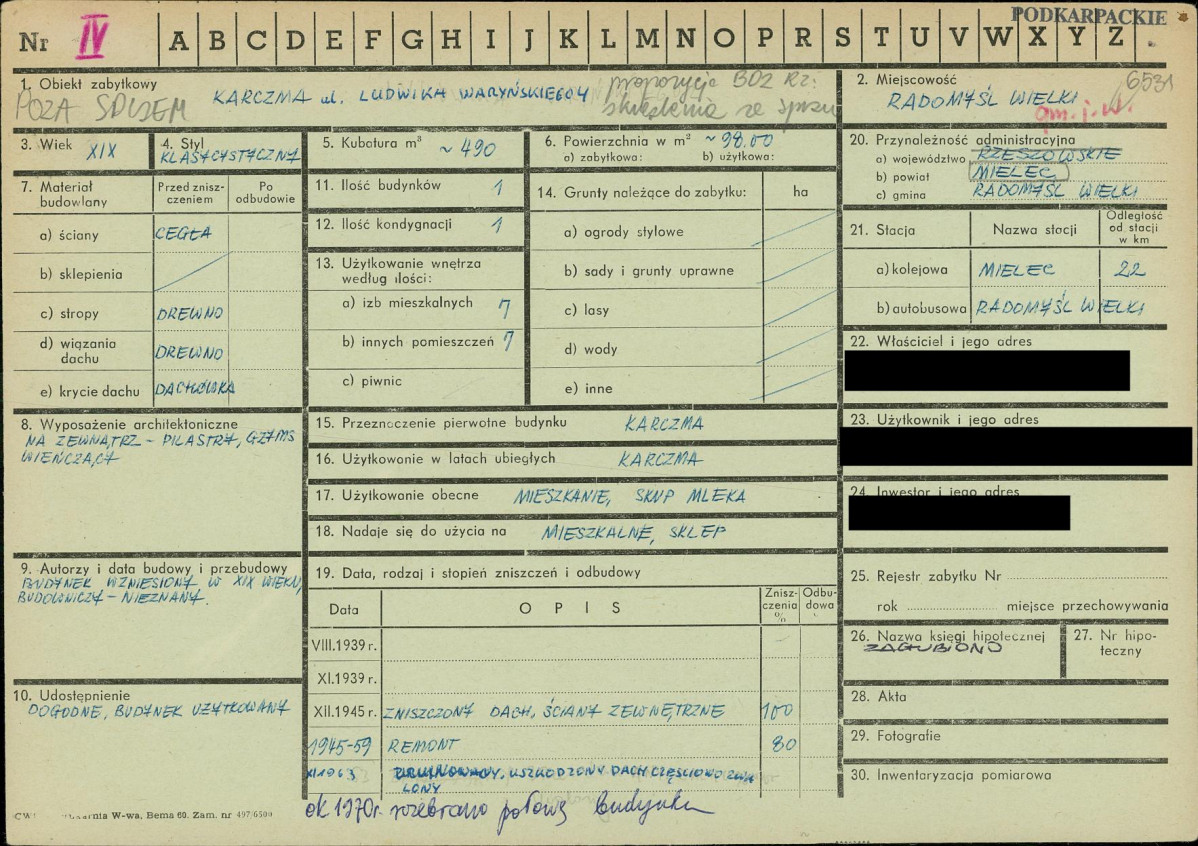 PODKARPACKIE
Nr IV A B C D E F G H I J K L M N O P R S T U V W X Y Z
6531
1. Obiekt zabytkowy
POZA SPISEM
KARCZMA ul. LUDWIKA WARYŃSKIEGO 4
propozycja BDZ Rz.
skreślenia ze spisu
2. Miejscowość
RADOMYŚL WIELKI
gm. j. w.
3. Wiek XIX
4. Styl
KLASYCYSTYCZNY
5. Kubatura m³ ~ 490
6. Powierzchnia w m² ~ 98.00
a) zabytkowa: b) użytkowa:
20. Przynależność administracyjna
a) województwo RZESZOWSKIE
b) powiat MIELEC
c) gmina RADOMYŚL WIELKI
7. Materiał budowlany
Przed zniszczeniem
Po odbudowie
a) ściany CEGŁA
b) sklepienia
c) stropy DREWNO
d) wiązania dachu DREWNO
e) krycie dachu DACHÓWKA
11. Ilość budynków 1
12. Ilość kondygnacji 1
13. Użytkowanie wnętrza
według ilości:
a) izb mieszkalnych 7
b) innych pomieszczeń 7
c) piwnic
14. Grunty należące do zabytku: ha
a) ogrody stylowe
b) sady i grunty uprawne
c) lasy
d) wody
e) inne
21. Stacja Nazwa stacji Odległość od stacji w km
a) kolejowa MIELEC 22
b) autobusowa RADOMYŚL WIELKI
22. Właściciel i jego adres
23. Użytkownik i jego adres
24. Inwestor i jego adres
8. Wyposażenie architektoniczne
NA ZEWNĄTRZ - PILASTRY, GZYMS
WIEŃCZĄCY
15. Przeznaczenie pierwotne budynku KARCZMA
16. Użytkowanie w latach ubiegłych KARCZMA
17. Użytkowanie obecne MIESZKANIE, SKUP MLEKA
18. Nadaje się do użycia na MIESZKALNE, SKLEP
9. Autorzy i data budowy i przebudowy
BUDYNEK WZNIESIONY W XIX WIEKU,
BUDOWNICZY - NIEZNANY.
19. Data, rodzaj i stopień zniszczeń i odbudowy
Data OPIS Zniszczenia % Odbudowa
VIII.1939 r.
XI.1939 r.
XII.1945 r. ZNISZCZONY DACH, ŚCIANY ZEWNĘTRZNE 100
1945-59 REMONT 80
XI 1963 USZKODZONY DACH CZĘŚCIOWO ZWALONY
ok 1970r. rozebrano połowę budynku
10. Udostępnienie
DOGODNE, BUDYNEK UŻYTKOWANY
25. Rejestr zabytku Nr
rok miejsce przechowywania
26. Nazwa księgi hipotecznej
ZAGUBIONO
27. Nr hipoteczny
28. Akta
29. Fotografie
30. Inwentaryzacja pomiarowa
W-wa, Bema 60. Zam. nr 497/6500